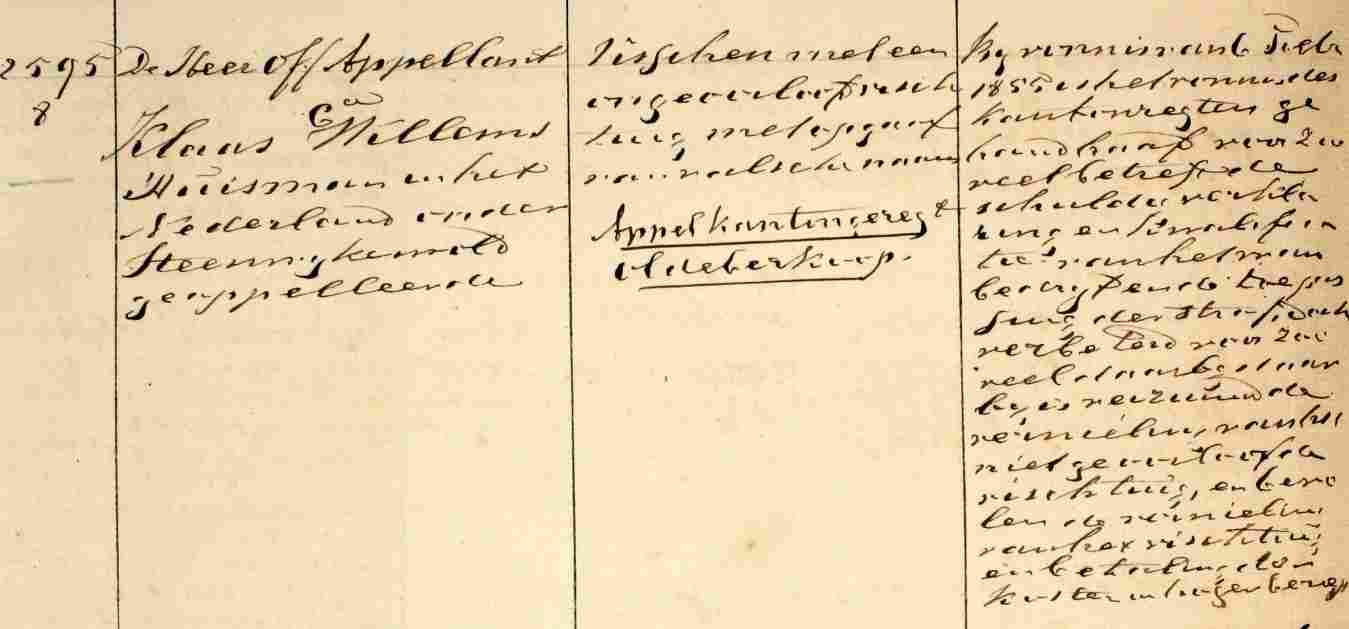 2595
8
De Heer Off Appellant
Ca
Klaas Willems
Huisman in het
Nederland onder
Steenwykerwold
geappelleerde
Visschen met een
ongeoorloofd visch
tuig met opgaaf
van valsche naam
Appel kantongeregt
Oldeberkoop.
By vonnis van 6 Febr
1855 is het vonnis des
kantonregters ge
handhaafd voor zoo
veel betreft de
schuldig verkla
ring en kwalifica
tie van het wan
bedryf en de toepas
sing der straf, doch
verbeterd voor zoo
veel daarbij daar
by is verzuimd de
vernieling van het
niet geoorloofde
vischtuig, en bevo
len de vernieling
van het vischtuig
en betaling der
kosten in hooger beroep